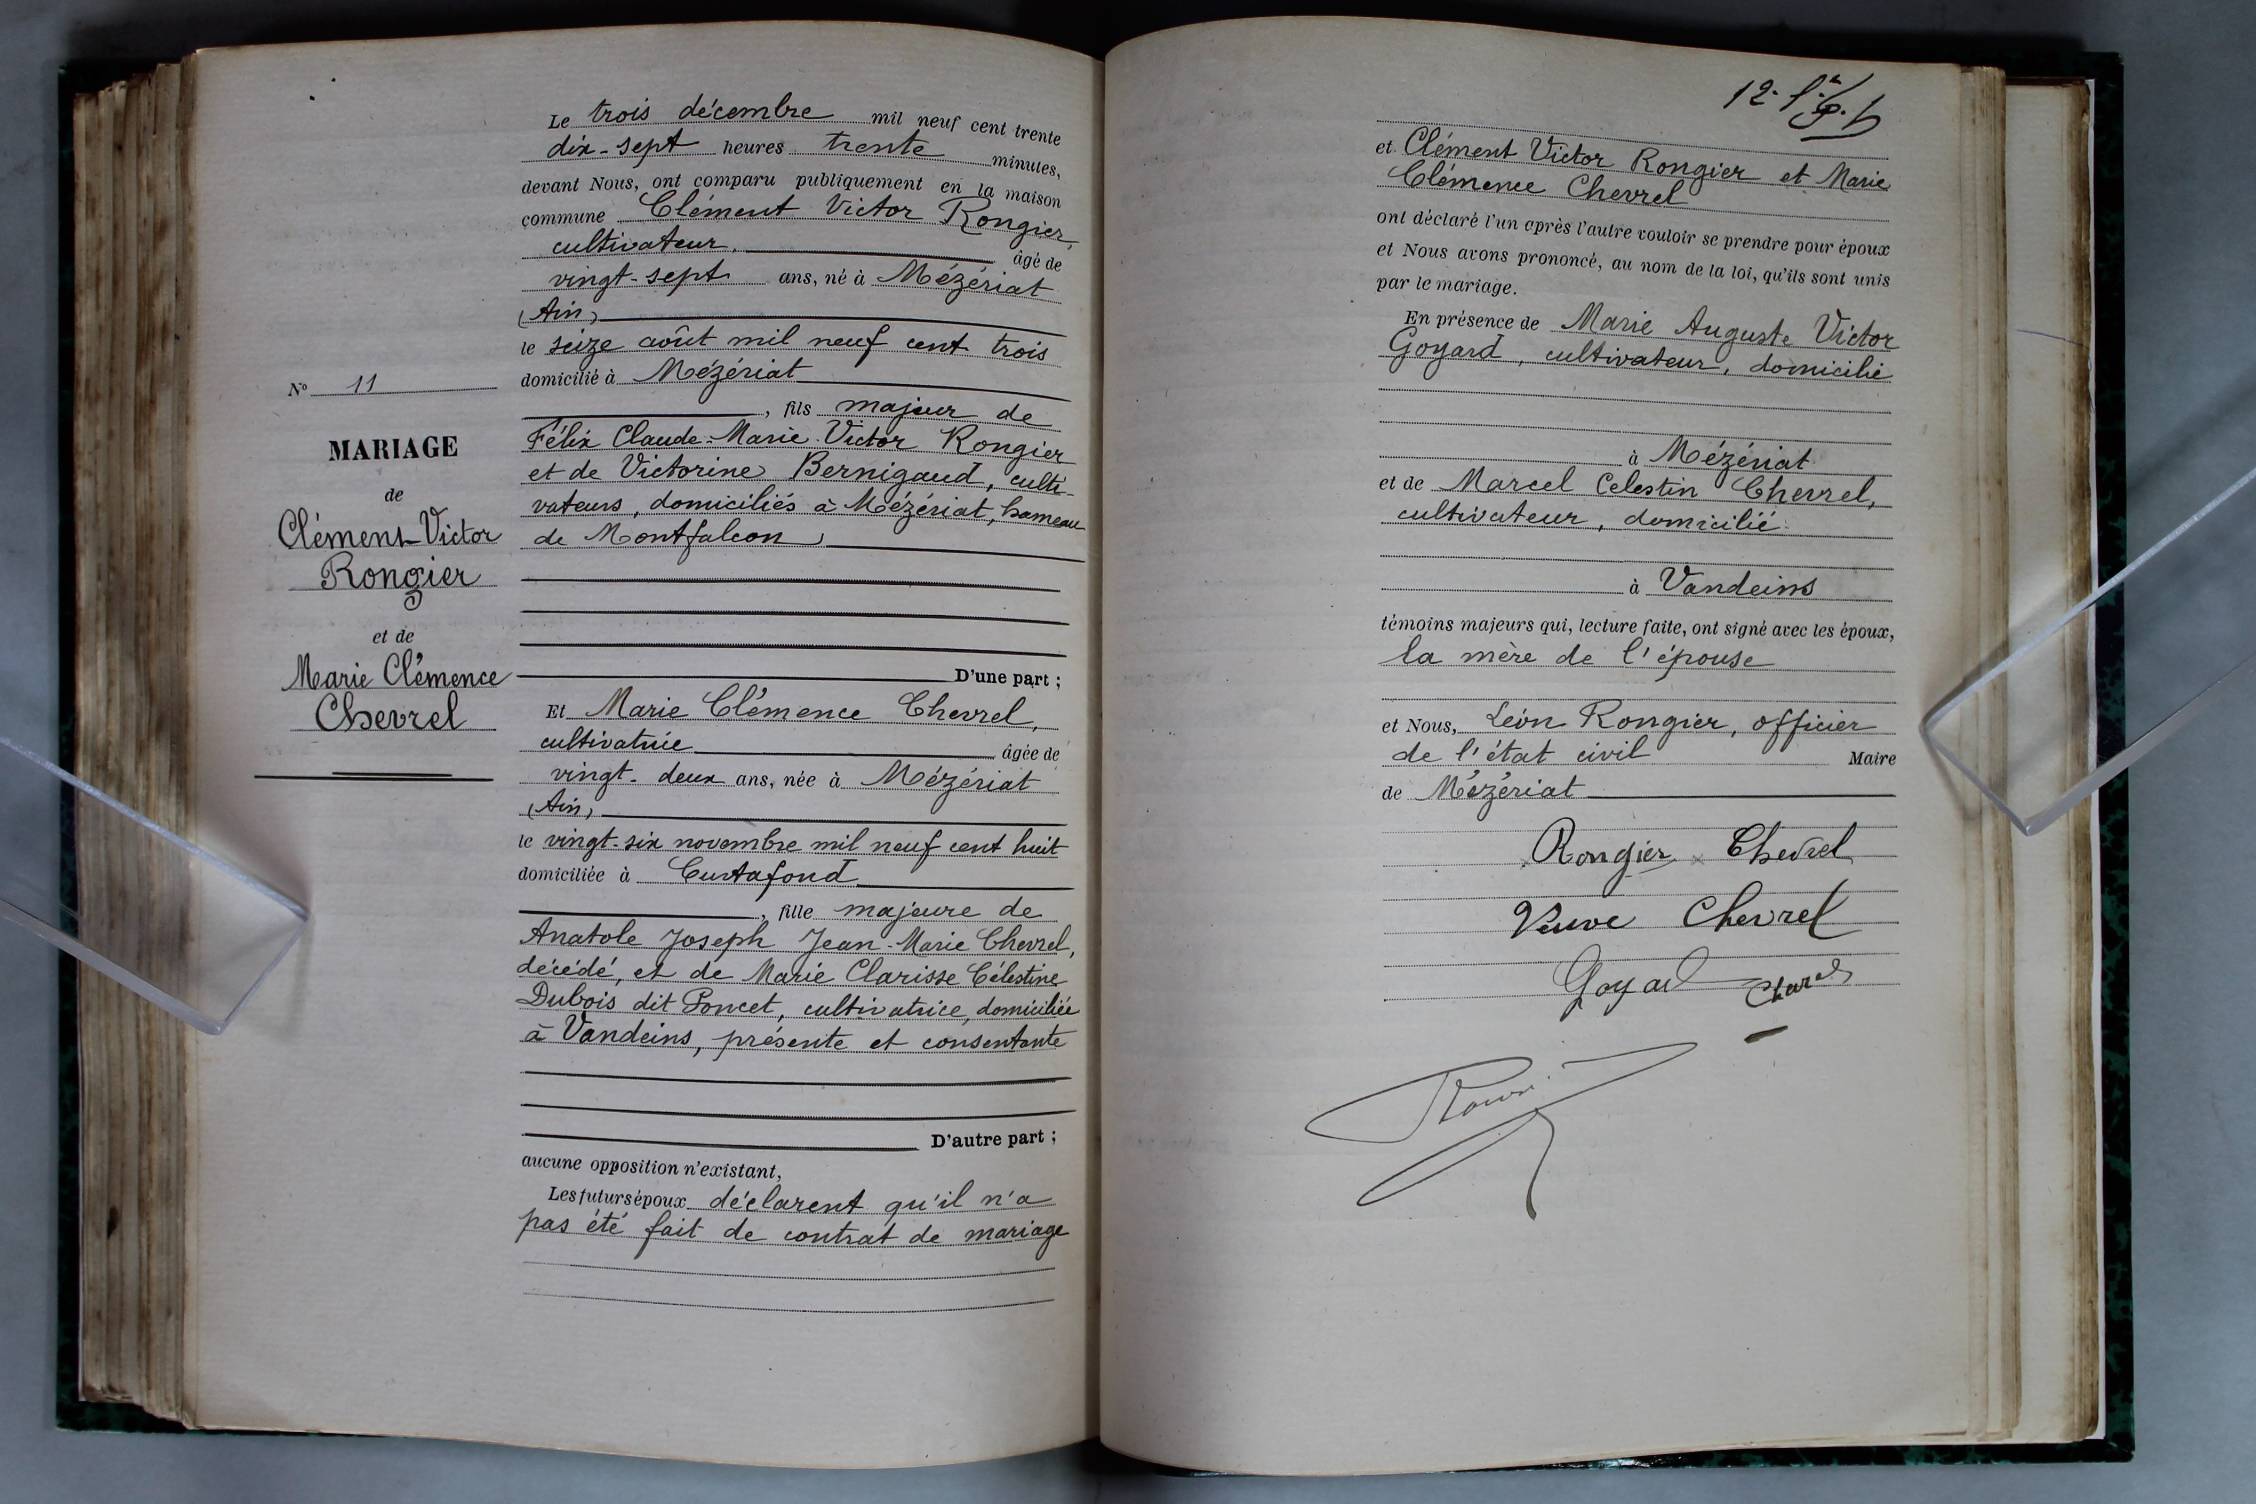 N° 11
MARIAGE
de
Clément Victor
Rongier
et de
Marie Clémence
Chevrel
Le trois décembre mil neuf cent trente
dix-sept heures trente minutes,
devant Nous, ont comparu publiquement en la maison
commune Clément Victor Rongier,
cultivateur, âgé de
vingt-sept ans, né à Mézériat
(Ain)
le seize août mil neuf cent trois
domicilié à Mézériat
, fils majeur de
Félix Claude-Marie-Victor Rongier
et de Victorine Bernigaud, culti-
vateurs, domiciliés à Mézériat, hameau
de Montfalcon,
D'une part ;
Et Marie Clémence Chevrel,
cultivatrice âgée de
vingt-deux ans, née à Mézériat
(Ain)
le vingt-six novembre mil neuf cent huit
domiciliée à Curtafond
, fille majeure de
Anatole Joseph Jean-Marie Chevrel,
décédé, et de Marie Clarisse Célestine
Dubois dit Poncet, cultivatrice, domiciliée
à Vandeins, présente et consentante
D'autre part ;
aucune opposition n'existant,
Les futurs époux déclarent qu'il n'a
pas été fait de contrat de mariage
et Clément Victor Rongier et Marie
Clémence Chevrel
ont déclaré l'un après l'autre vouloir se prendre pour époux
et Nous avons prononcé, au nom de la loi, qu'ils sont unis
par le mariage.
En présence de Marie Auguste Victor
Goyard, cultivateur, domicilié
à Mézériat
et de Marcel Celestin Chevrel,
cultivateur, domicilié
à Vandeins
témoins majeurs qui, lecture faite, ont signé avec les époux,
la mère de l'épouse
et Nous, Léon Rongier, officier
de l'état civil Maire
de Mézériat
Rongier Chevrel
Veuve Chevrel
Goyard